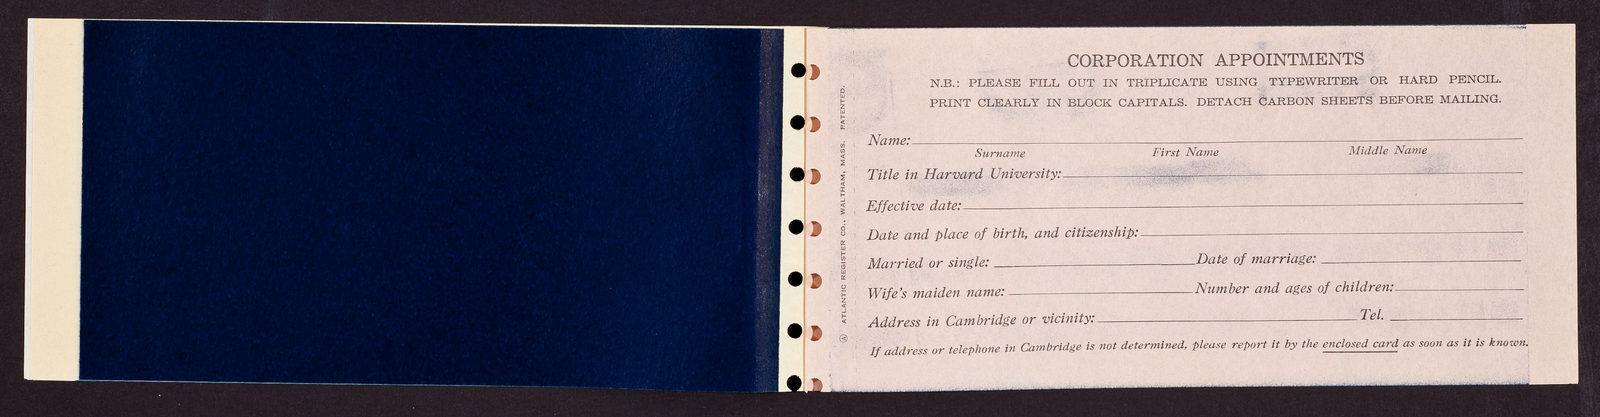 CORPORATION APPOINTMENTS
N.B.: PLEASE FILL OUT IN TRIPLICATE USING TYPEWRITER OR HARD PENCIL.
PRINT CLEARLY IN BLOCK CAPITALS. DETACH CARBON SHEETS BEFORE MAILING.
Name:
Surname First Name Middle Name
Title in Harvard University:
Effective date:
Date and place of birth, and citizenship:
Married or single: Date of marriage:
Wife's maiden name: Number and ages of children:
Address in Cambridge or vicinity: Tel.
If address or telephone in Cambridge is not determined, please report it by the enclosed card as soon as it is known.
Ⓐ ATLANTIC REGISTER CO., WALTHAM, MASS. PATENTED.